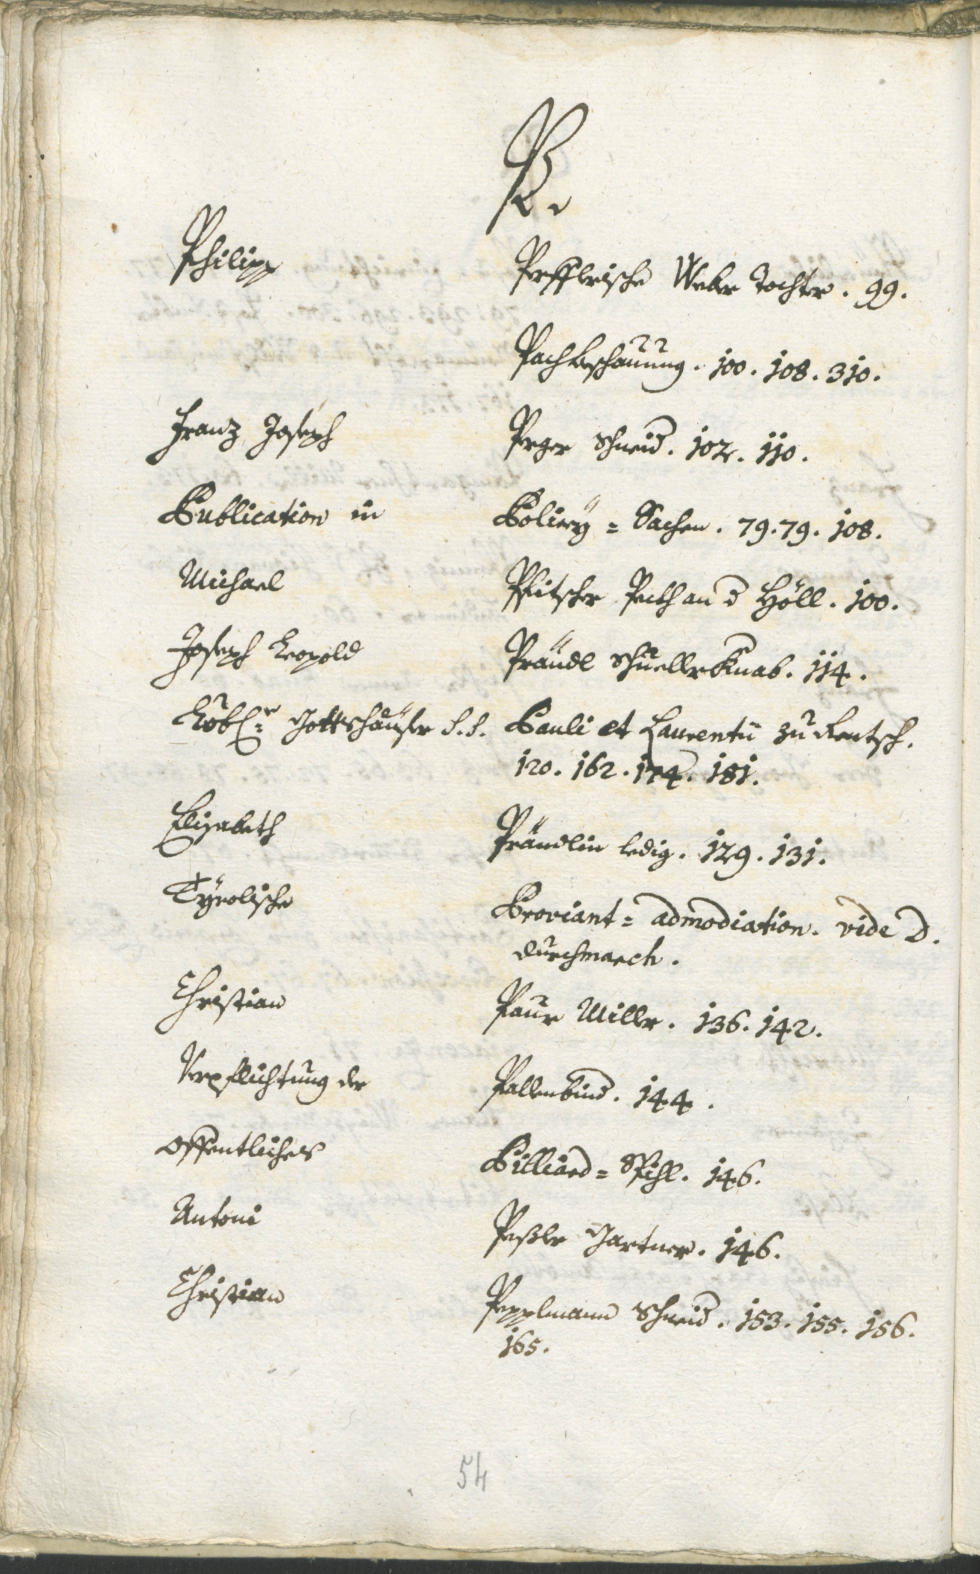 P.
Philipp Pefflerische Weber Tochter. 99.
Pachbeschauung. 100. 108. 310.
Franz Joseph Peger Schneid. 102. 110.
Publication in Policey = Sachen. 79. 79. 108.
Michael Pfitscher Pech an d Höll. 100.
Joseph Leopold Prändl Schuellr Knab. 114.
Löbl: Gottshäuser S. S. Pauli et Laurentii zu Rentsch.
120. 162. 174. 181.
Elisabeth Prändlin ledig. 129. 131.
Tÿrolische Proviant = admodiation. vide D.
durchmarch.
Christian Paur Miller. 136. 142.
Verpflichtung der Pallenbind. 144.
offentliches Billiard = Spihl. 146.
Antoni Peßler Gartner. 146.
Christian Pepplmann Schneid. 153. 155. 156.
165.
54